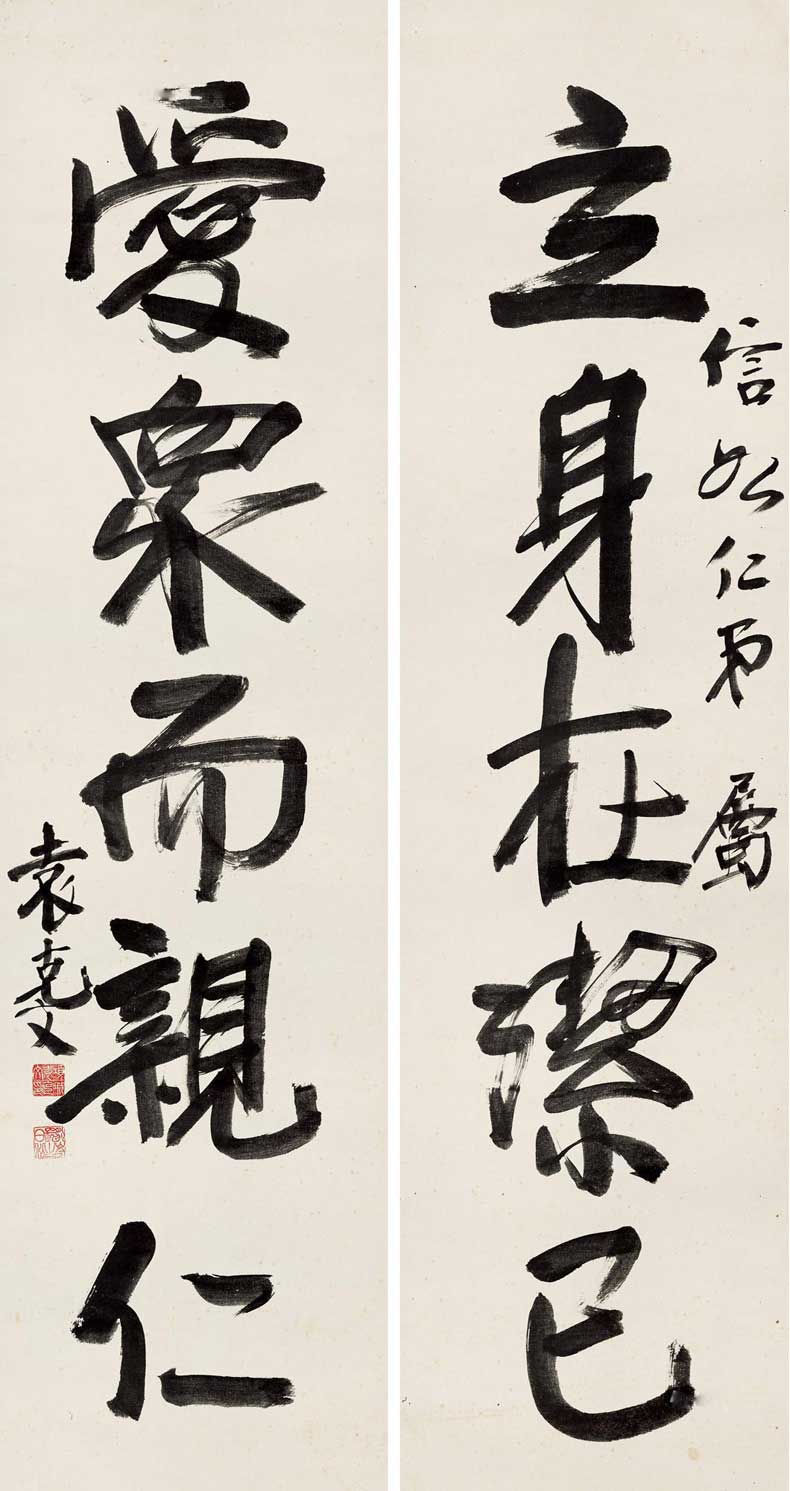 信如仁弟 屬
立身在潔己
愛衆而親仁
袁克文